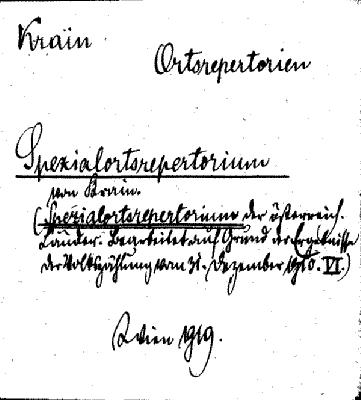 Krain
Ortsrepertorien
Spezialortsrepertorium
von Krain.
(Spezialortsrepertorium der österreich.
Länder. Bearbeitet auf Grund der Ergebnisse
der Volkszählung vom 31. Dezember 1910. VI.)
Wien 1919.